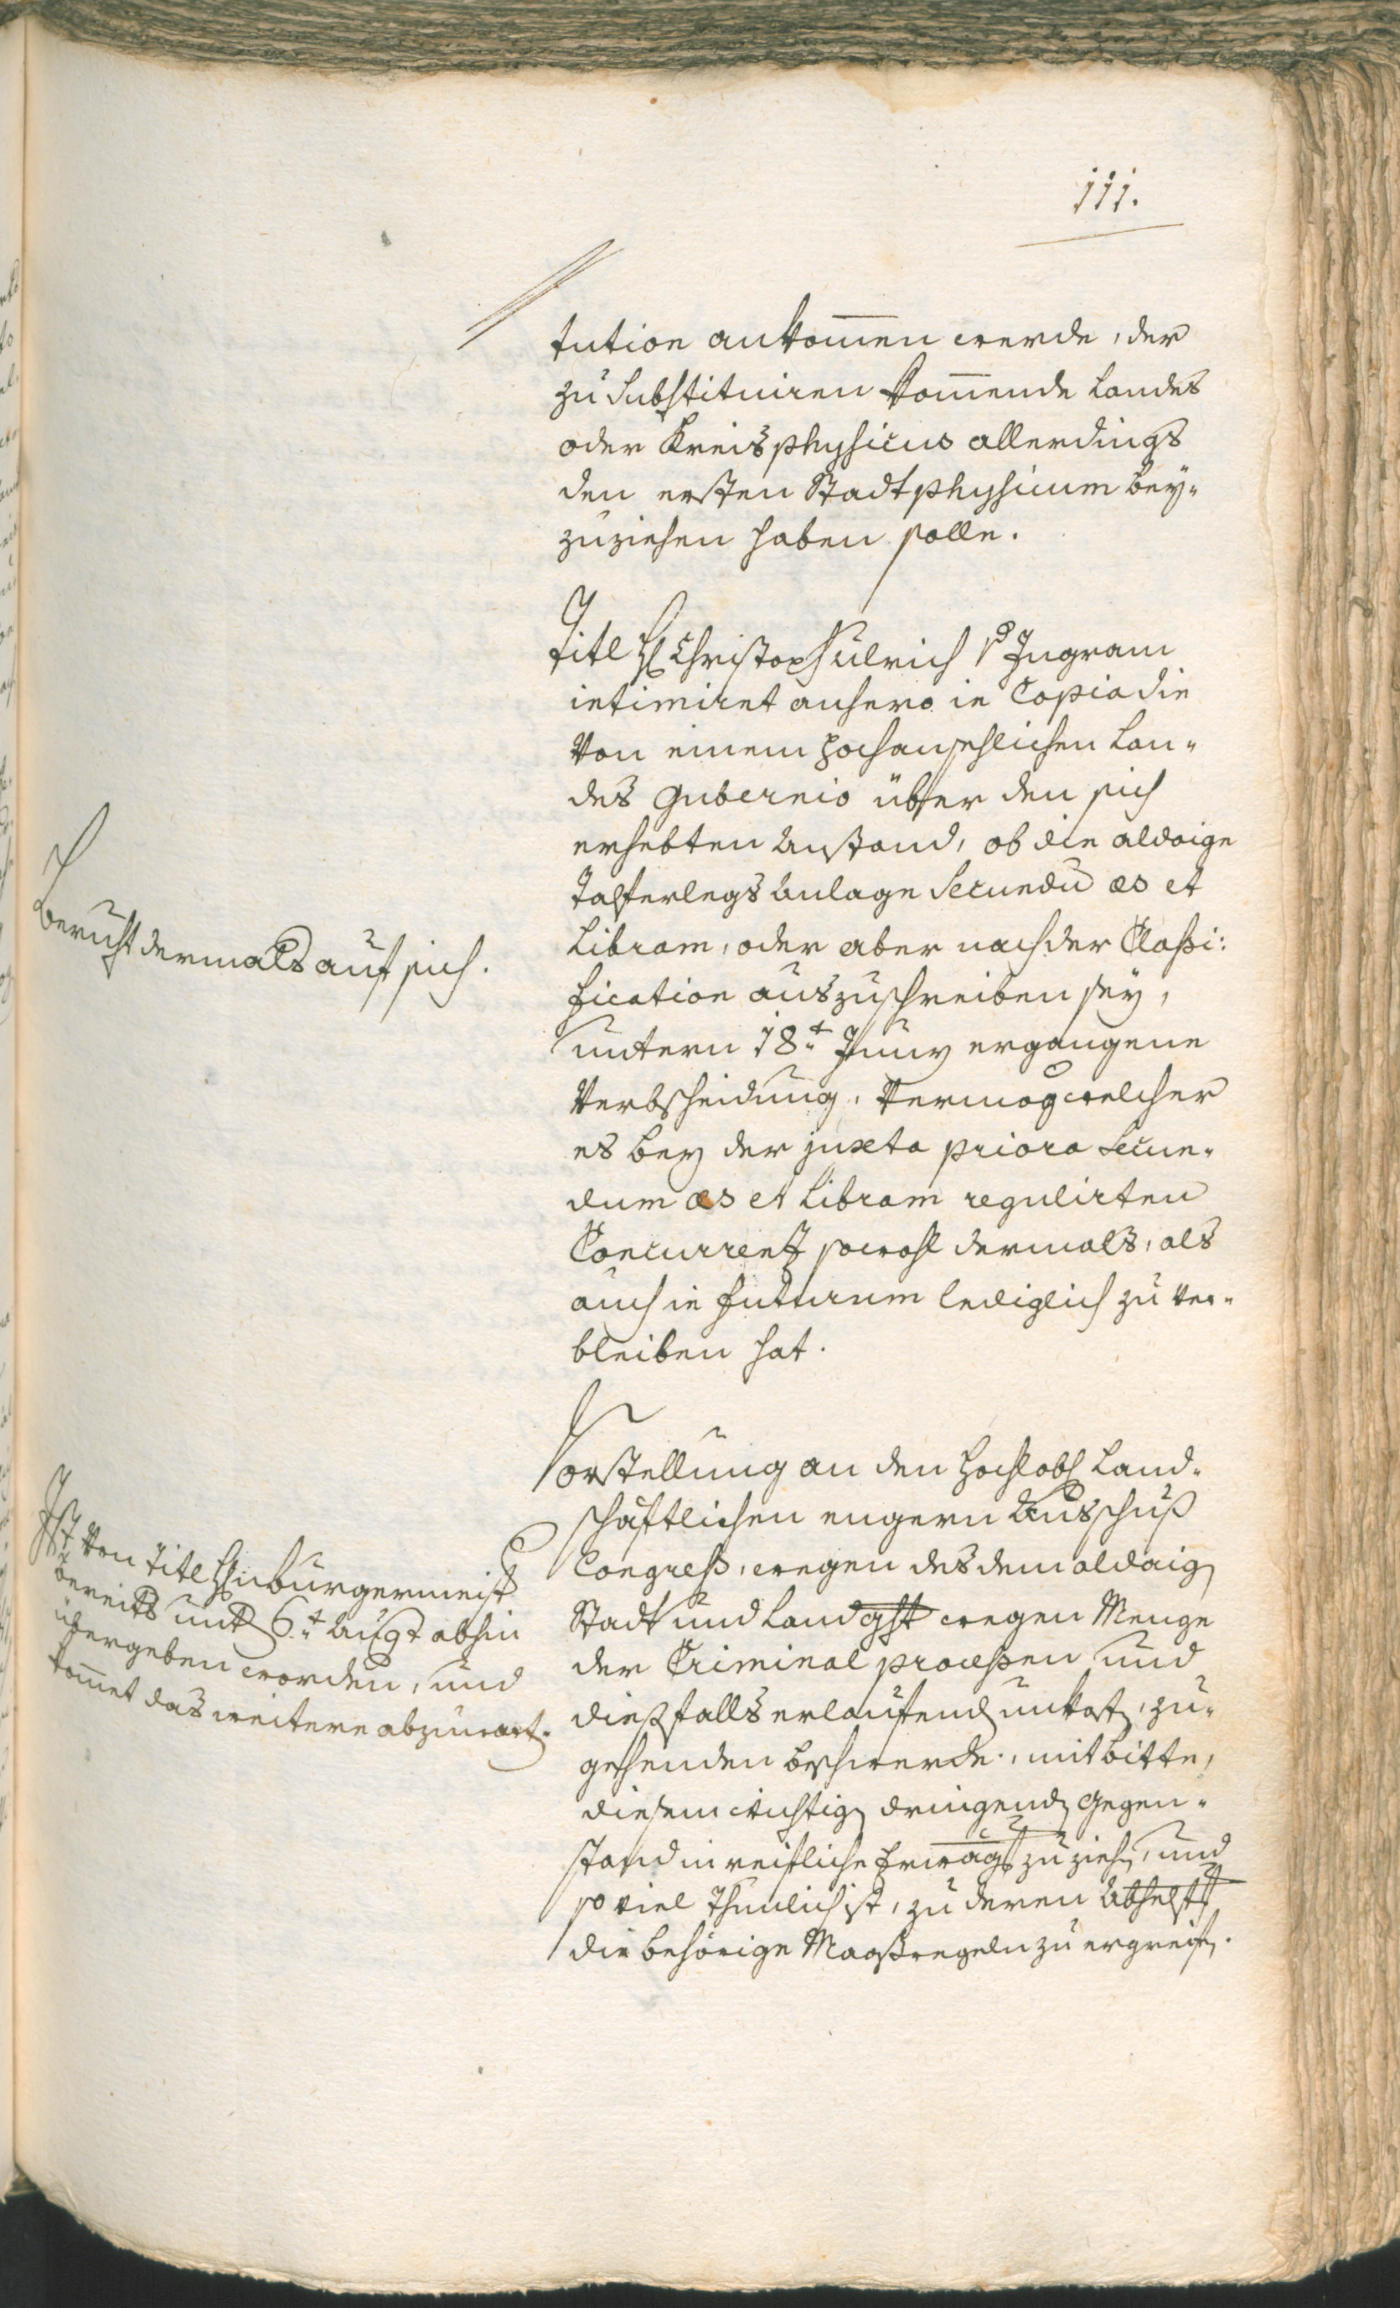 111.
tution ankom̄en werde, der
zu Substituiren kom̄ende Landes
oder Kreisphysicus allerdings
den ersten Stadtphysicum bey-
zuziehen haben solle.
Titl H. Christoph Ulrich v. Ingram
intimiret anhero in Copia die
von einem hochansehlichen Lan-
des Gubernio über den sich
erhebten Anstand, ob die aldaige
Tafferlegs Anlage Secundū æs et
Libram, oder aber nach der Classi:
fication auszuschreiben sey,
Beruht dermals auf sich.
untern 18t Juny ergangene
Verbscheidung, vermög welcher
es bey der juxta priora secun-
dum æs et Libram regulirten
Concurrenz sowohl dermals, als
auch in futurum lediglich zu ver-
bleiben hat.
Vorstellung an den hochlobl Land-
schaftlichen engern Ausschuß
Congreß, wegen des dem aldaig
Stadt und Landght wegen Menge
der Criminal processen und
dießfalls erlaufend unkost, zu-
gehenden beschwerde, mit bitte,
diesem wichtig dringend gegen-
stand in reifliche Erwägg zu zieh, und
so viel thunlich ist, zu deren Abhelff
die behörige Maaßregeln zu ergreif.
Ist von Titl Hn burgermeist
bereits unt 6t Augt abhin
übergeben worden, und
kom̄et das weitere abzuwart.